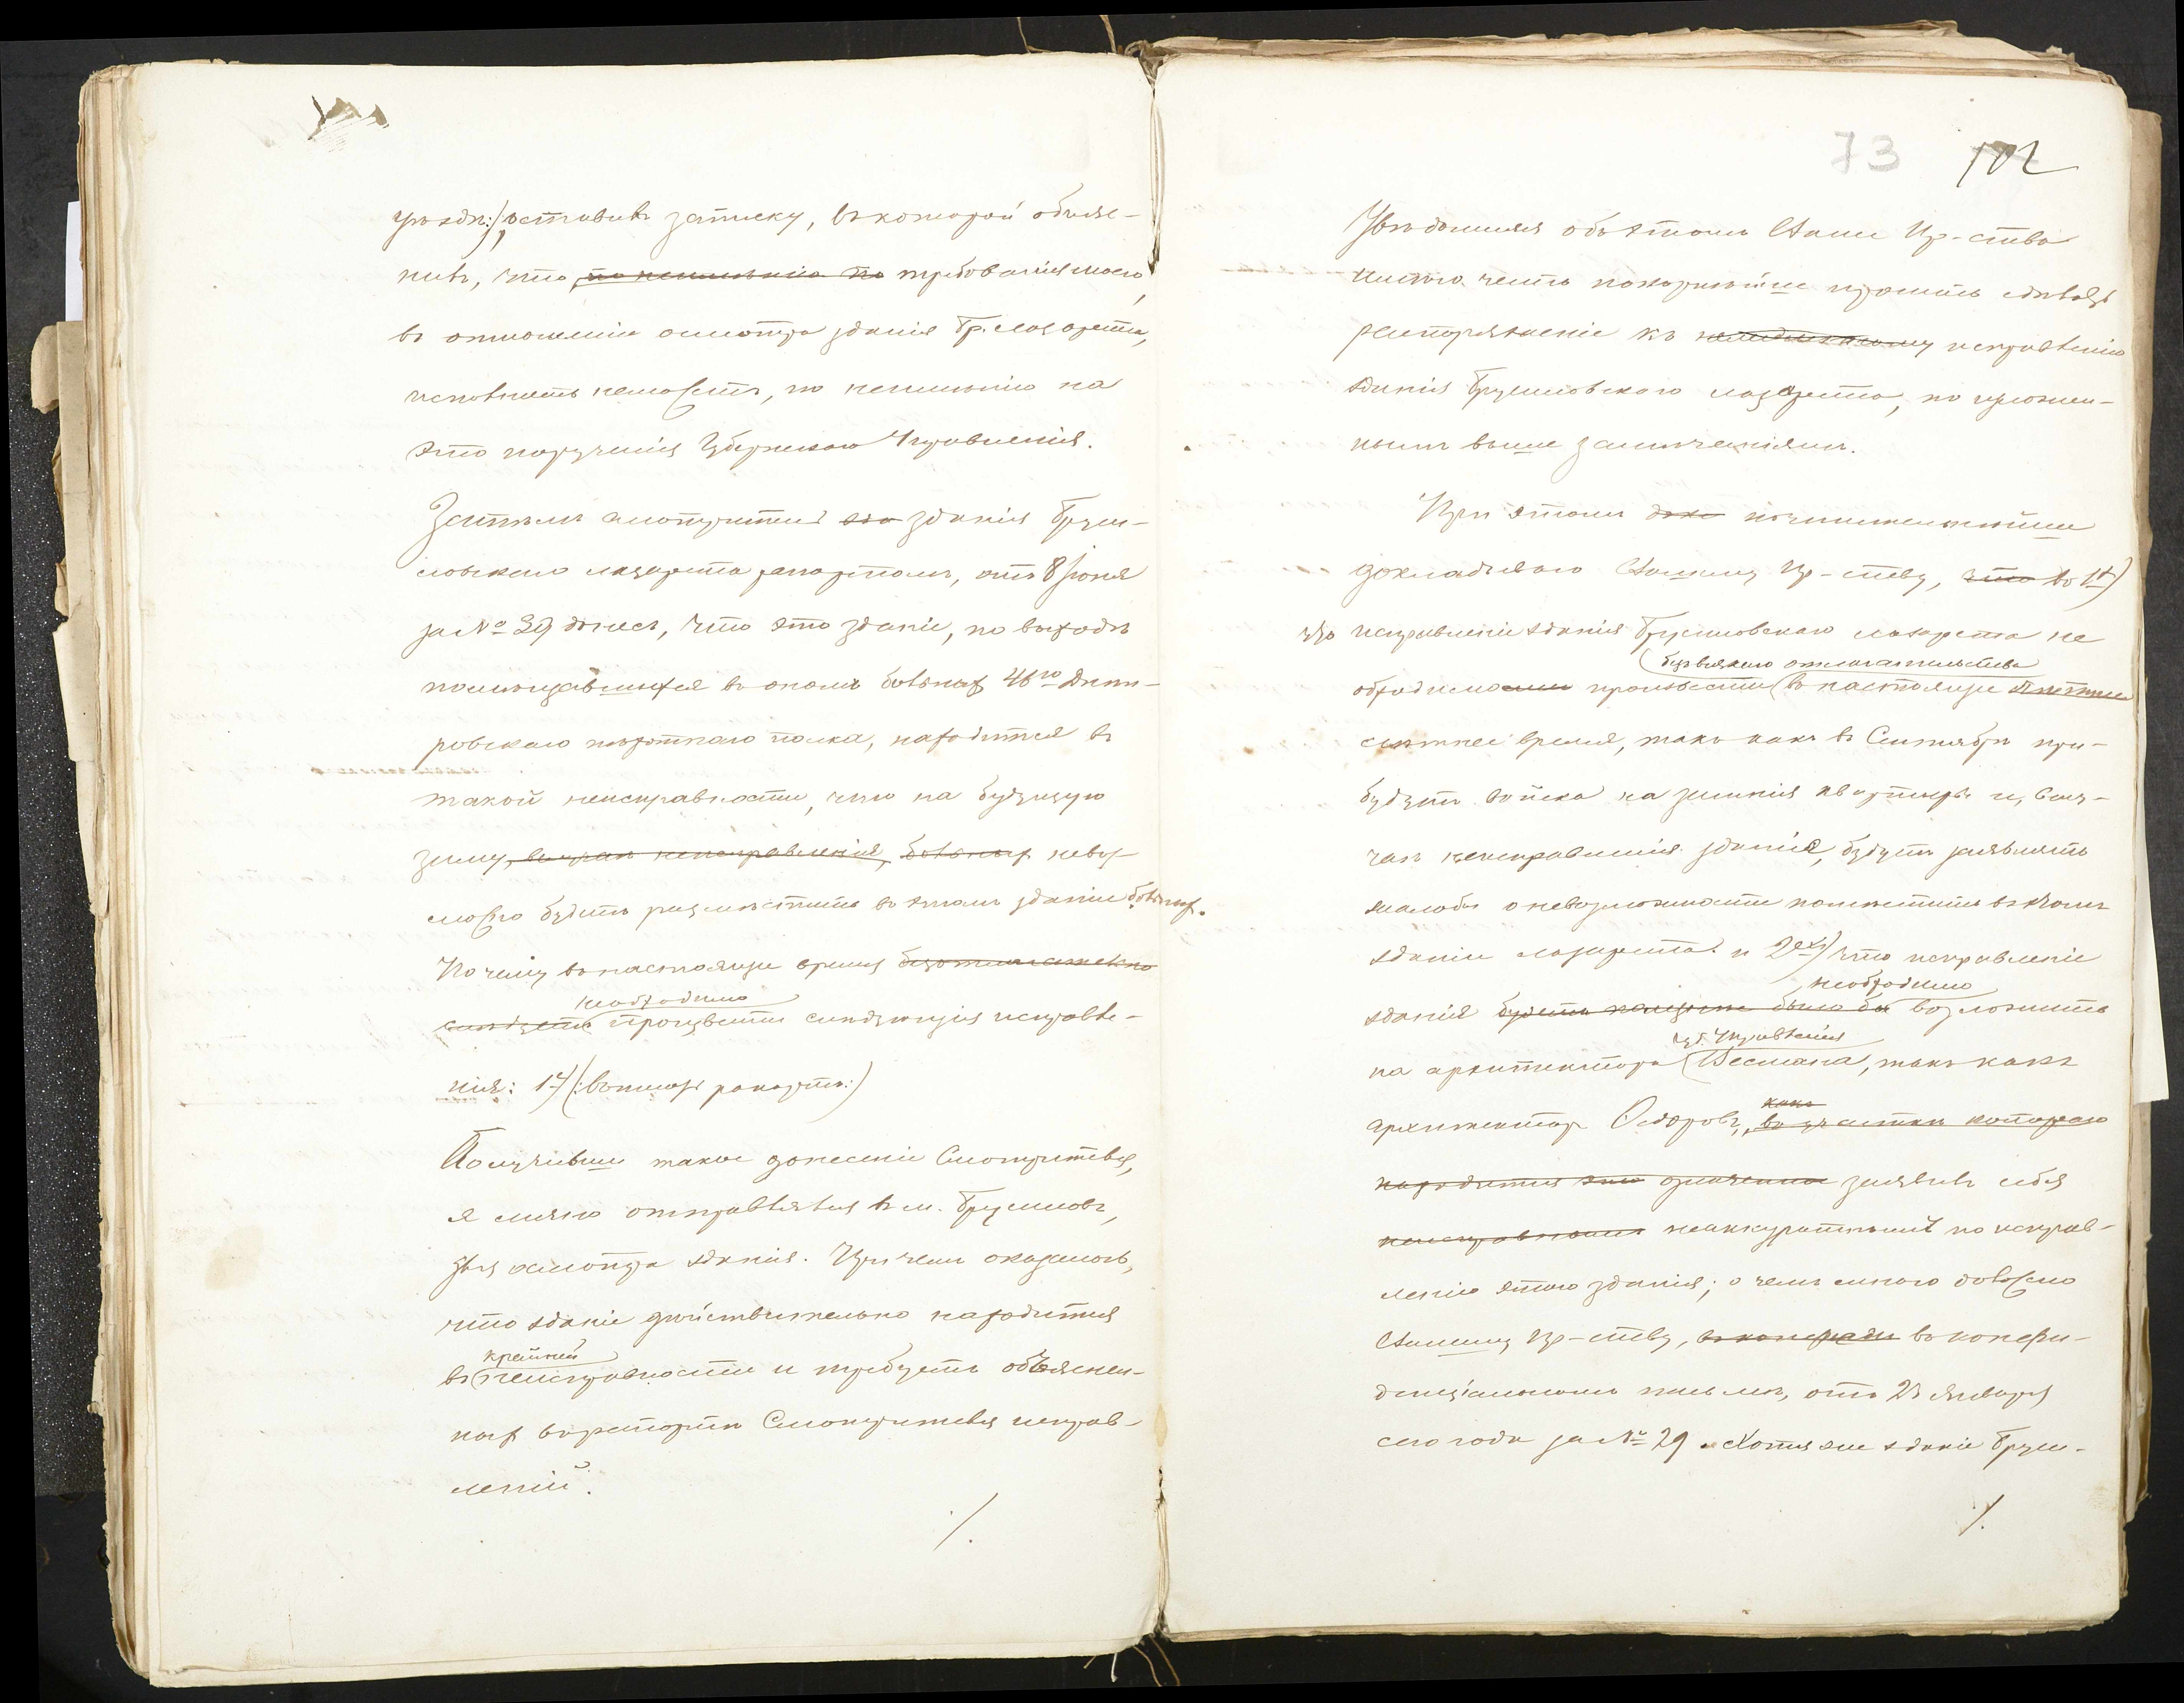 уѣздъ:) оставивъ записку, въ которой объяс-
нивъ, что по неимѣнію по требованія моего,
въ отношеніи осмотра зданія Бр. лазарета,
исполнить неможетъ, по неимѣнію на
это порученія Губернскаго Управленія.
Затѣмъ смотритель зданія Брус-
ловскаго лазарета рапортомъ, отъ 8 Іюня
за № 39 донесъ, что это зданіе, по выходѣ
помѣщавшихся въ ономъ больныхъ 46го Днѣп-
ровскаго пѣхотнаго полка, находится въ
такой неисправности, что на будущую
зиму, въ случаѣ неисправленія, больныхъ невоз-
можно будетъ размѣстить въ этомъ зданіи больныхъ.
Почему въ настоящее время безотлагательно
необходимо
слѣдуетъ произвести слѣдующія исправле-
нія: 1е) (:выписать рапортъ:)
Получивши такое донесеніе Смотрителя,
я лично отправлялся въ м. Брусиловъ,
для осмотра зданія. При чемъ оказалось,
что зданіе дѣйствительно находится
крайней
въ неисправности и требуетъ объяснен-
ныхъ въ рапортѣ Смотрителя исправ-
леній.
/.
73 102
Увѣдомляя объ этомъ Ваше Пр-ство
имѣю честь покорнѣйше просить сдѣлать
распоряженіе къ немедленному исправленію
зданія Брусиловскаго лазарета, по изложен-
нымъ выше замѣчаніямъ.
При этомъ почтительнѣйше
докладываю Вашему Пр-ству, что во 1х)
что исправленіе зданія Брусиловскаго лазарета не
безъ всякаго отлагательства
обходимо произвести въ настоящее
лѣтнее время, такъ какъ въ Сентябрѣ при-
будутъ войска на зимнія квартиры и, въ слу-
чаѣ неисправленія зданія, будутъ заявлять
жалобы о невозможности помѣстить въ этомъ
зданіи лазарета. и 2хъ) что исправленіе
необходимо
зданія будетъ было бы возложить
Губ. Управленія
на архитектора Весмана, такъ какъ
какъ
архитекторъ Ѳедоровъ, въ участкѣ котораго
находится это заявилъ себя
неисправнымъ неаккуратнымъ по исправ-
ленію этого зданія; о чемъ много доложено
Вашему Пр-ству, въ конфи-
денціальномъ письмѣ, отъ 23 Января
сего года за № 29. Хотя же зданіе Брус-
/.